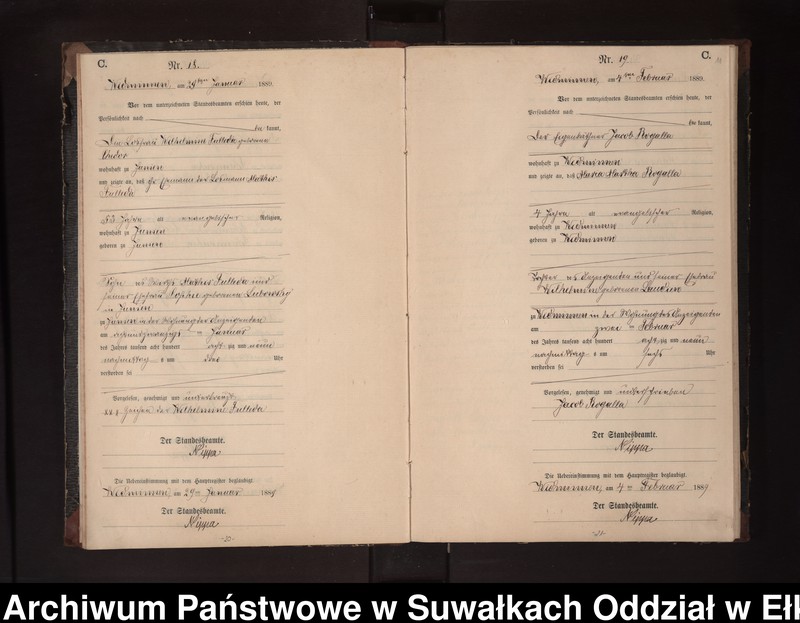 C.
Nr. 18.
Widminnen, am 29ten Januar 1889.
Vor dem unterzeichneten Standesbeamten erschien heute, der
Persönlichkeit nach
be kannt,
Wilhelmine Sulleda geborene
wohnhaft zu Jannen
und zeigte an, daß der Losmann Mathes
Sulleda
53 Jahre alt evangelischer Religion,
wohnhaft zu Jannen
geboren zu Jannen
Sohn des Mathes Sulleda und
seiner Ehefrau Sophie geborenen
in Jannen
zu Jannen in der Wohnung der Anzeigenden
am acht und zwanzigsten Januar
des Jahres tausend acht hundert acht zig und neun
nachmittag s um drei Uhr
verstorben sei
Vorgelesen, genehmigt und unterkreuzt
xxx Zeichen der Wilhelmine Sulleda
Der Standesbeamte.
Nippa
Die Uebereinstimmung mit dem Hauptregister beglaubigt.
Widminnen, am 29ten Januar 1889
Der Standesbeamte.
Nippa
Nr. 19
C.
Widminnen, am 4ten Februar 1889.
Vor dem unterzeichneten Standesbeamten erschien heute, der
Persönlichkeit nach
be kannt,
Der Eigenkäthner Jacob Rogalla
wohnhaft zu Widminnen
und zeigte an, daß Maria Martha Rogalla
4 Jahre alt evangelischer Religion,
wohnhaft zu Widminnen
geboren zu Widminnen
Tochter des Anzeigenden und seiner Ehefrau
Wilhelmine geborenen
zu Widminnen in der Wohnung des Anzeigenden
am zweiten Februar
des Jahres tausend acht hundert acht zig und neun
nachmittag s um sechs Uhr
verstorben sei
Vorgelesen, genehmigt und unterschrieben
Jacob Rogalla
Der Standesbeamte.
Nippa
Die Uebereinstimmung mit dem Hauptregister beglaubigt.
Widminnen, am 4ten Februar 1889
Der Standesbeamte.
Nippa
Archiwum Państwowe w Suwałkach Oddział w Ełk